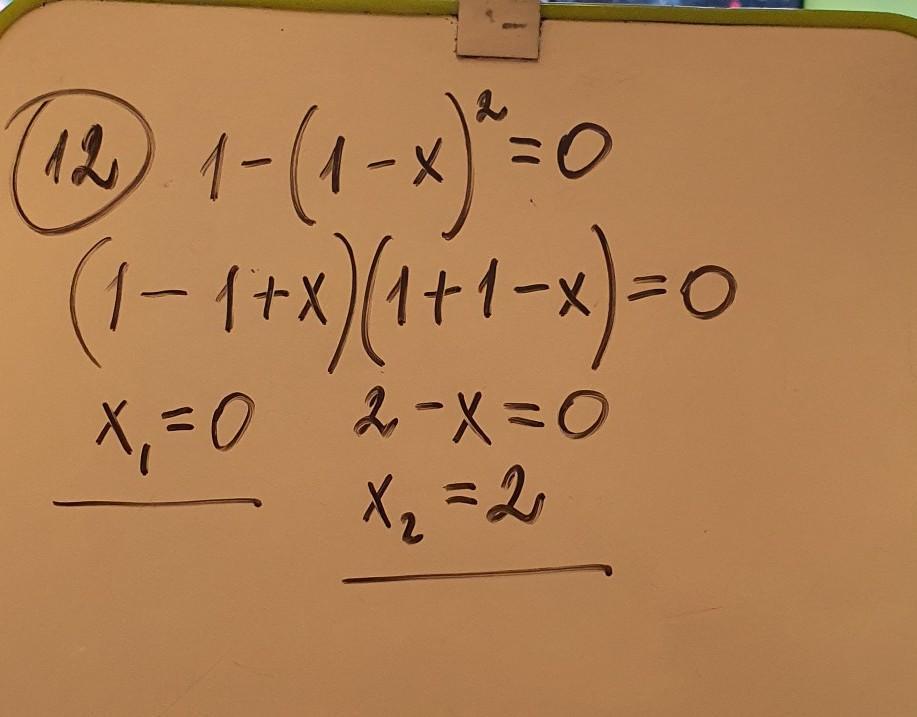 12 1-(1-x)²=0
(1-1+x)(1+1-x)=0
x₁=0 2-x=0
x₂=2